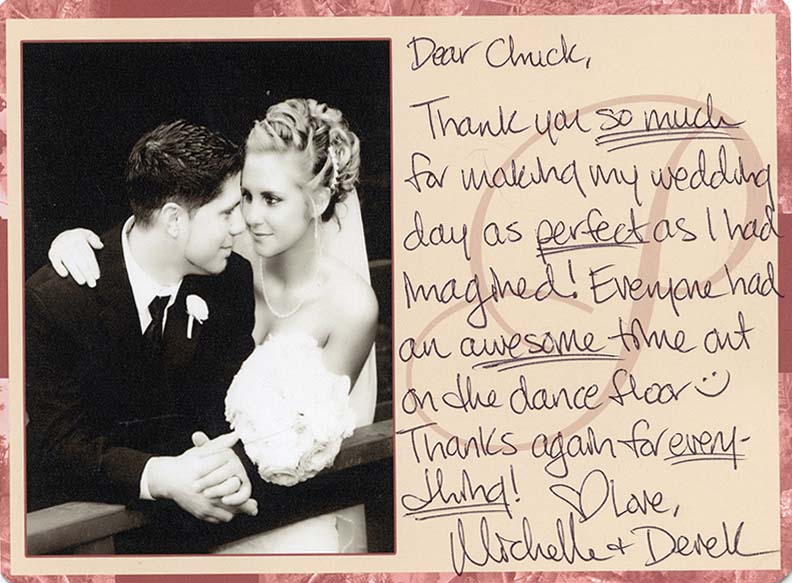 Dear Chuck,
Thank you so much
for making my wedding
day as perfect as I had
imagined! Everyone had
an awesome time out
on the dance floor
Thanks again for every-
thing! ♡Love,
Michelle + Derek
P